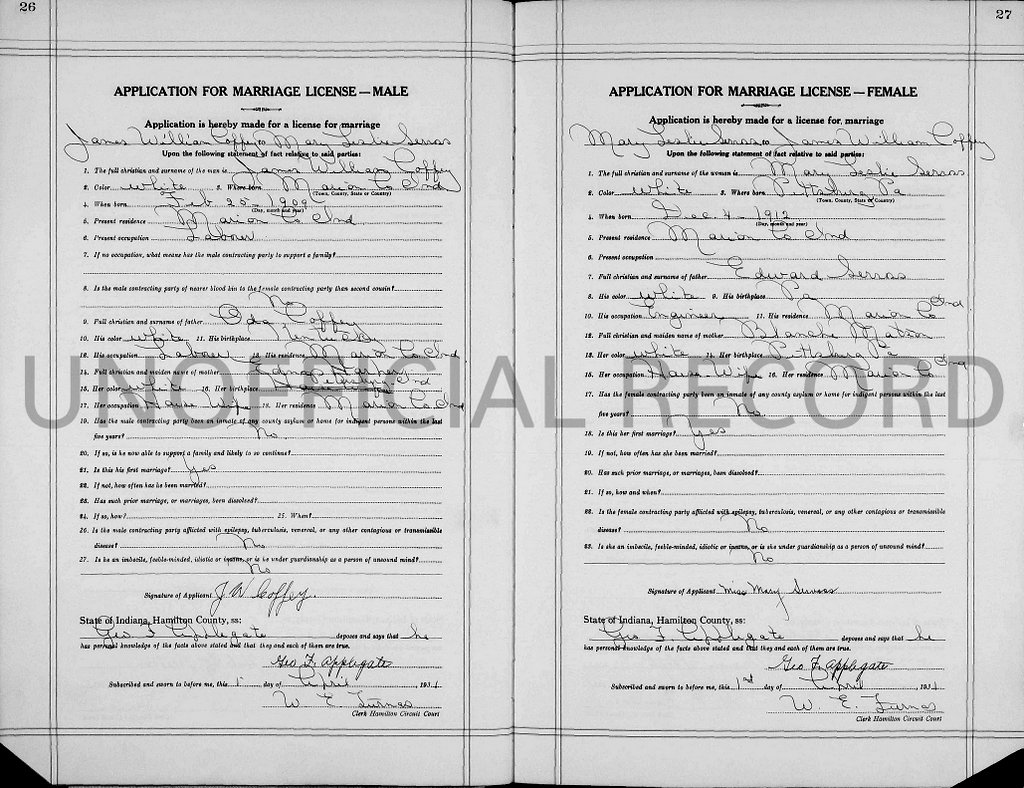 26
APPLICATION FOR MARRIAGE LICENSE—MALE
Application is hereby made for a license for marriage
James William Coffey to Mary Leslie Servas
Upon the following statement of fact relative to said parties:
1. The full christian and surname of the man is James William Coffey
2. Color White 3. Where born Marion Co Ind
(Town, County, State or Country)
4. When born Feb 25 - 1909
(Day, month and year)
5. Present residence Marion Co Ind
6. Present occupation Laborer
7. If no occupation, what means has the male contracting party to support a family?
8. Is the male contracting party of nearer blood kin to the female contracting party than second cousin?
No
9. Full christian and surname of father Oda Coffey
10. His color White 11. His birthplace Kentucky
12. His occupation Laborer 13. His residence Marion Co Ind
14. Full christian and maiden name of mother Edna Harper
15. Her color White 16. Her birthplace Ind
17. Her occupation House Wife 18. Her residence Marion Co Ind
19. Has the male contracting party been an inmate of any county asylum or home for indigent persons within the last
five years? No
20. If so, is he now able to support a family and likely to so continue?
21. Is this his first marriage? Yes
22. If not, how often has he been married?
23. Has such prior marriage, or marriages, been dissolved?
24. If so, how? 25. When?
26. Is the male contracting party afflicted with epilepsy, tuberculosis, venereal, or any other contagious or transmissible
disease? No
27. Is he an imbecile, feeble-minded, idiotic or insane, or is he under guardianship as a person of unsound mind?
No
Signature of Applicant J W Coffey.
State of Indiana, Hamilton County, ss:
Geo F Applegate deposes and says that he
has personal knowledge of the facts above stated and that they and each of them are true.
Geo F. Applegate
Subscribed and sworn to before me, this 1 day of April, 1931
W. E. Furnas
Clerk Hamilton Circuit Court
27
APPLICATION FOR MARRIAGE LICENSE—FEMALE
Application is hereby made for a license for marriage
Mary Leslie Servas to James William Coffey
Upon the following statement of fact relative to said parties:
1. The full christian and surname of the woman is Mary Leslie Servas
2. Color White 3. Where born Pittsburg Pa
(Town, County, State or Country)
4. When born Dec 4 - 1912
(Day, month and year)
5. Present residence Marion Co Ind
6. Present occupation
7. Full christian and surname of father Edward Servas
8. His color White 9. His birthplace Pa
10. His occupation Engineer 11. His residence Marion Co Ind
12. Full christian and maiden name of mother Blanche Matson
13. Her color White 14. Her birthplace Pittsburg Pa
15. Her occupation House Wife 16. Her residence Marion Co Ind
17. Has the female contracting party been an inmate of any county asylum or home for indigent persons within the last
five years? No
18. Is this her first marriage? Yes
19. If not, how often has she been married?
20. Has such prior marriage, or marriages, been dissolved?
21. If so, how and when?
22. Is the female contracting party afflicted with epilepsy, tuberculosis, venereal, or any other contagious or transmissible
disease? No
23. Is she an imbecile, feeble-minded, idiotic or insane, or is she under guardianship as a person of unsound mind?
No
Signature of Applicant Miss Mary Servas
State of Indiana, Hamilton County, ss:
Geo F Applegate deposes and says that he
has personal knowledge of the facts above stated and that they and each of them are true.
Geo F. Applegate
Subscribed and sworn to before me, this 1st day of April, 1931
W. E. Furnas
Clerk Hamilton Circuit Court
UNOFFICIAL RECORD